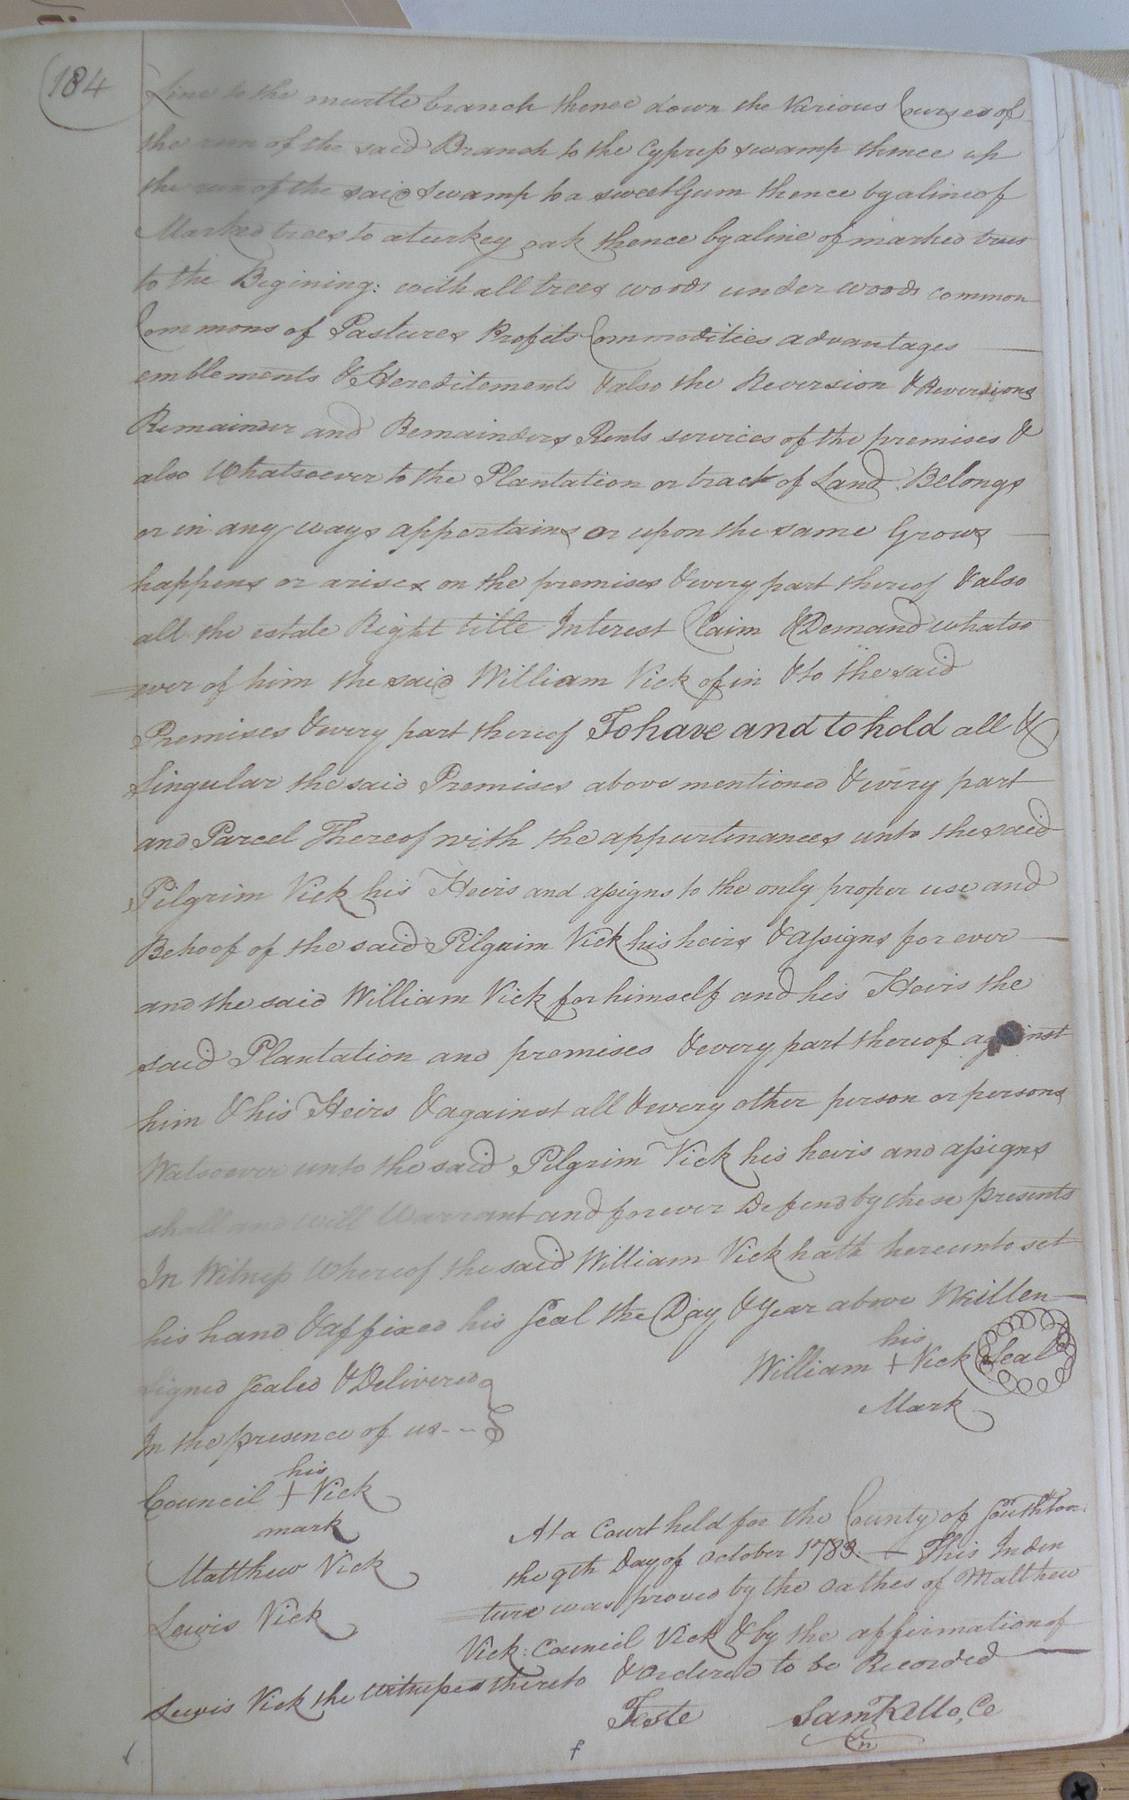 184
Line to the murtle branch thence down the Various Courses of
the run of the said Branch to the Cypress swamp thence up
the run of the said Swamp to a sweet Gum thence by a line of
Marked trees to a turkey oak thence by a line of marked trees
to the Begining: with all trees woods under woods common
Commons of Pastures Profets Commodities advantages
emblements & Hereditements & also the Reversion & Reversions
Remainder and Remainders Rents services of the premises &
also Whatsoever to the Plantation or tract of Land Belongs
or in any ways appertains or upon the same Grows
happens or arises on the premises & every part thereof & also
all the estate Right title Interest Caim & Demand whatso
=ever of him the said William Vick of in & to the said
Premises & every part thereof To have and to hold all &
Singular the said Premises above mentioned & every part
and Parcel Thereof with the appurtinances unto the said
Pilgrim Vick his Heirs and assigns to the only proper use and
Behoof of the said Pilgrim Vick his heirs & assigns for ever
and the said William Vick for himself and his Heirs the
said Plantation and premises & every part thereof against
him & his Heirs & against all & every other person or persons
Watsoever unto the said Pilgrim Vick his heirs and assigns
shall and will Warrant and forever Defend by these presents
In Witness Whereof the said William Vick hath hereunto set
his hand & affixed his Seal the Day & Year above Written
his
William + Vick Seal
Mark
Signed Sealed & Delivered
In the presence of us
his
Council + Vick
mark
Matthew Vick
Lewis Vick
At a Court held for the County of Southton.
the 9th Day of October 1783. — This Inden
=ture was proved by the oathes of Matthew
Vick: Council Vick & by the affirmation of
Lewis Vick the Witnesses thereto & Ordered to be Recorded
Teste Sam Kello, Co
Cn